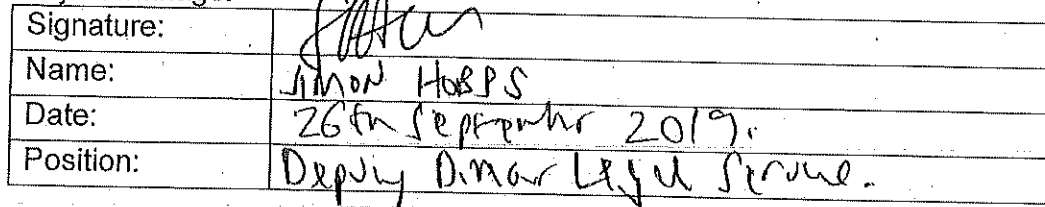 Signature:
Name: SIMON HOBBS
Date: 26th September 2019.
Position: Deputy Director Legal Service.